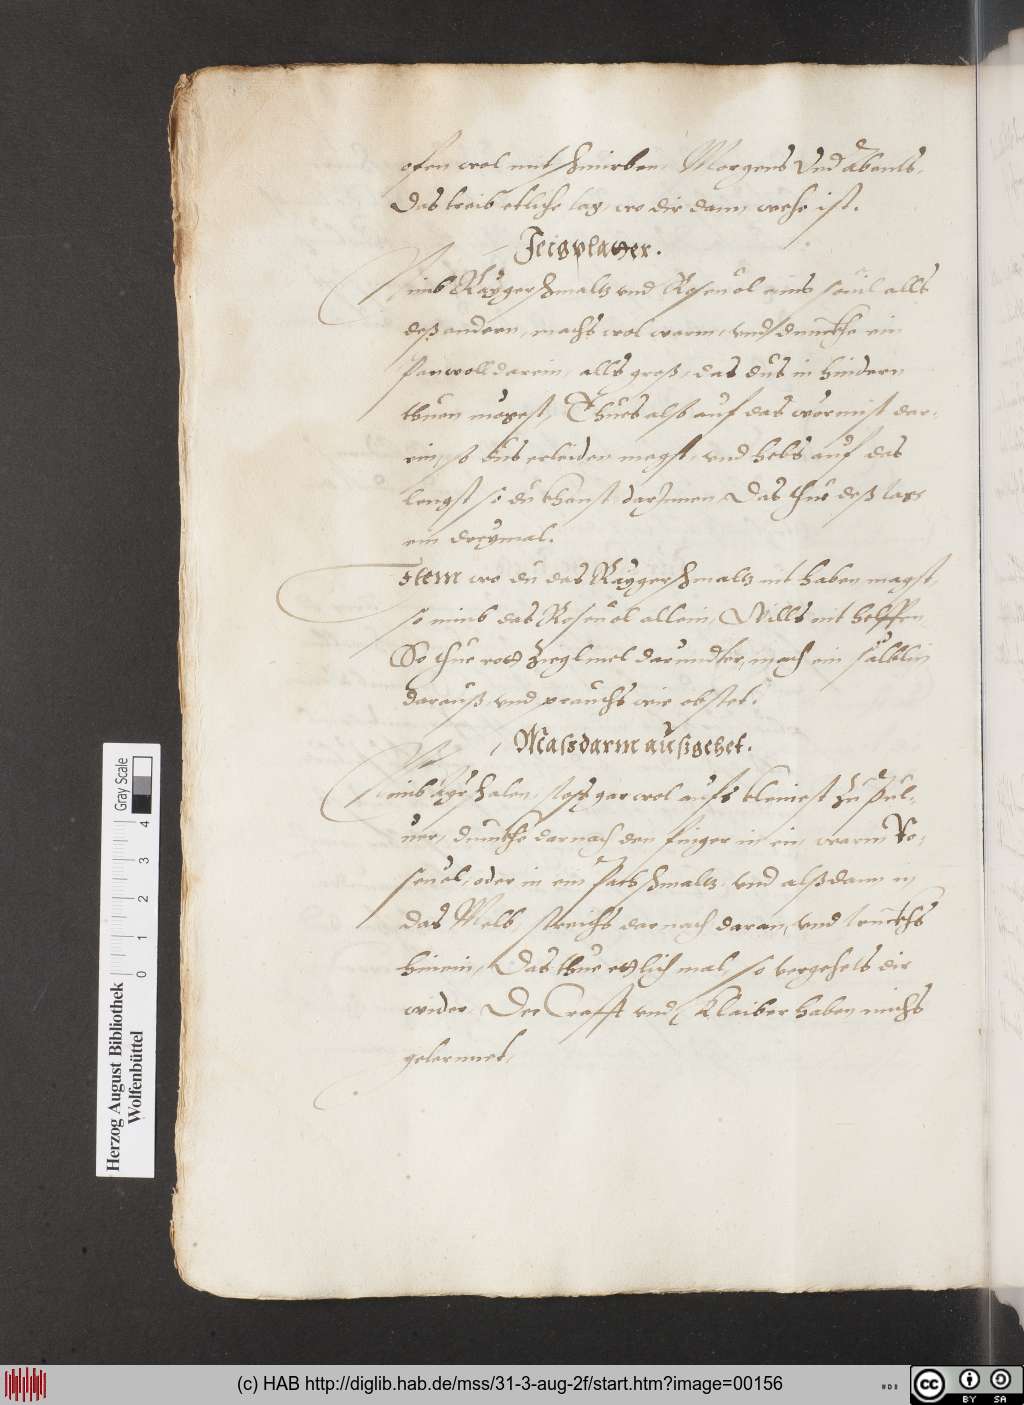 ofen wol mit schmirben, Morgens vnd abents,
Das treib etliche tag, wo dir dann wehe ist.
Feigplater.
Nimb Raygerschmaltz vnd Rosenöl eins souil alls
deß andern, machs wol warm, vnd dunckhe ein
Panwoll darein, alls groß, das dus in hindern
thuen mögest, Thues also auf das wörmist dar-
ein, so dus erleiden magst, vnd hebs auf das
lengst so du khanst darJnnen, Das thue deß tags
ein dreymal.
Item wo du das Raygerschmaltz nit haben magst,
so nimb das Rosenöl allein, Wills nit helffen,
So thue rott Zieglmel darundter, mach ein sälblin
darauß, vnd prauchs wie obstet.
Massdarm außgehet.
Nimb Ayrschalen, stoß gar wol aufs kleinest zu Pul-
uer, dunckhe darnach den finger in ein warm Ro-
senöl, oder in ein Pachschmaltz, vnd alßdann in
das Melb, streichs darnach daran, vnd truckhs
hinein, Das thue etlich mal, so vergehets dir
wider. Der Crafft vnd Klaiber haben michs
gelernnet.
Herzog August Bibliothek
Wolfenbüttel
0 1 2 3 4
Gray Scale
(c) HAB http://diglib.hab.de/mss/31-3-aug-2f/start.htm?image=00156
cc BY SA